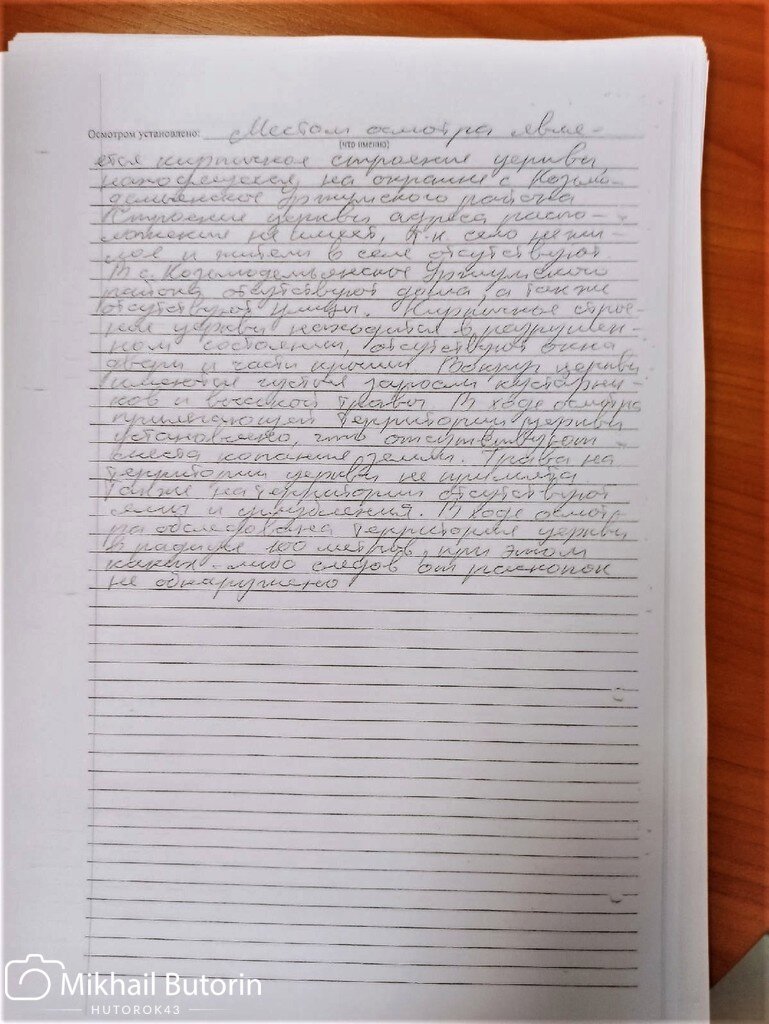 Осмотром установлено: Местом осмотра явля-
(что именно)
ется кирпичное строение церкви,
находящееся на окраине с Козьмо-
демьянское Уржумского района
Строение церкви адреса распо-
ложения не имеет, т.к село нежи-
лое и жители в селе отсутствуют.
В с. Козьмодемьянское Уржумского
района отсутствуют дома, а также
отсутствуют улицы. Кирпичное строе-
ние церкви находится в разрушен-
ном состоянии, отсутствуют окна
двери и части крыши. Вокруг церкви
имеются густые заросли кустарни-
ков и высокой травы В ходе осмотра
прилегающей территории церкви
установлено, что отсутствуют
места копания земли. Трава на
территории церкви не примята
Также на территории отсутствуют
ямы и углубления. В ходе осмот-
ра обследована территория церкви
в радиусе 100 метров, при этом
каких-либо следов от раскопок
не обнаружено
Mikhail Butorin
HUTOROK43